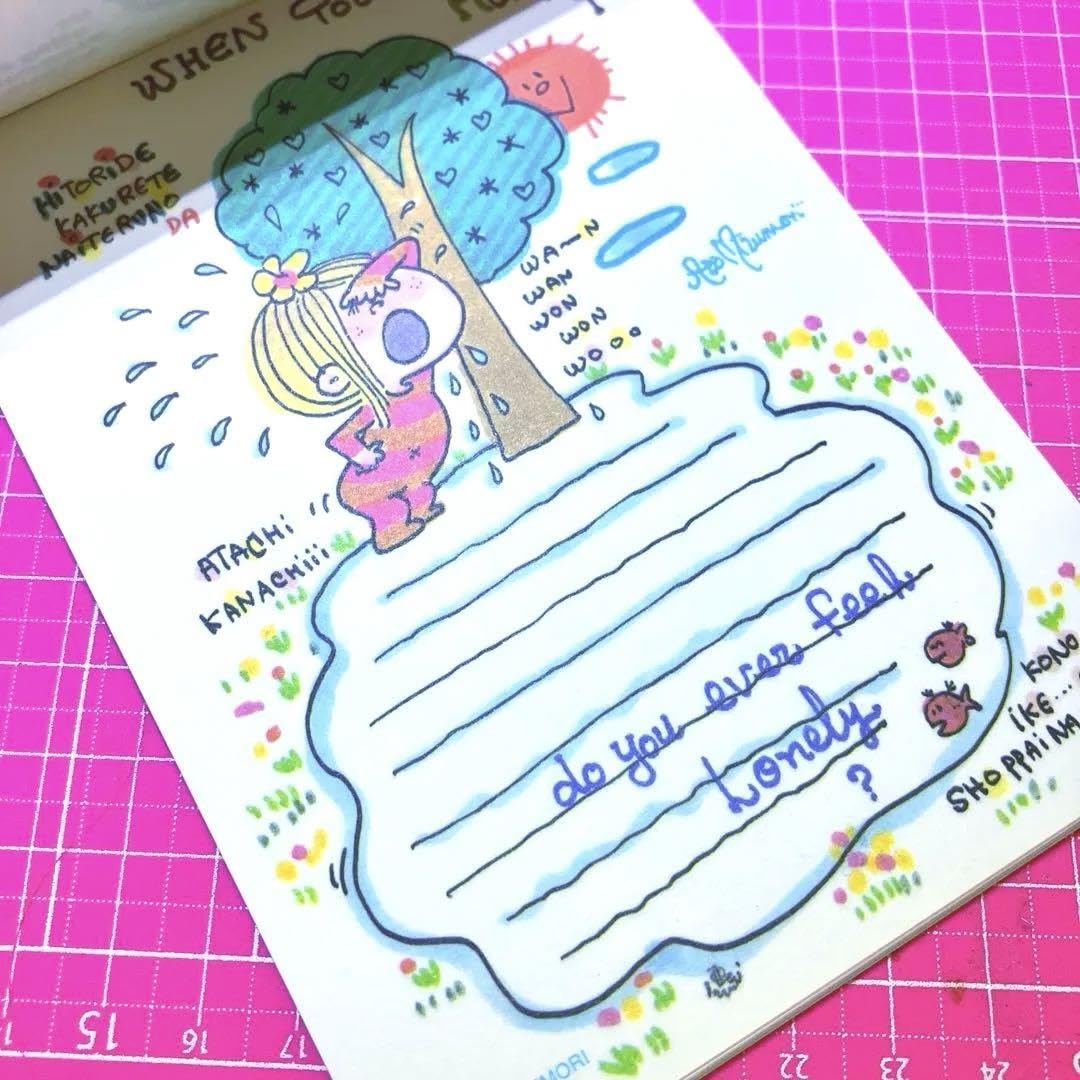 WHEN YOU
HITORIDE
KAKURETE
NAITERUNO
DA
WA—N
WAN
WON
WON
WOOO
ATACHI
KANACHIiii
do you ever feel
Lonely
?
KONO
IKE...
SHOPPAINA
MORI
15
16
17
22
23
24